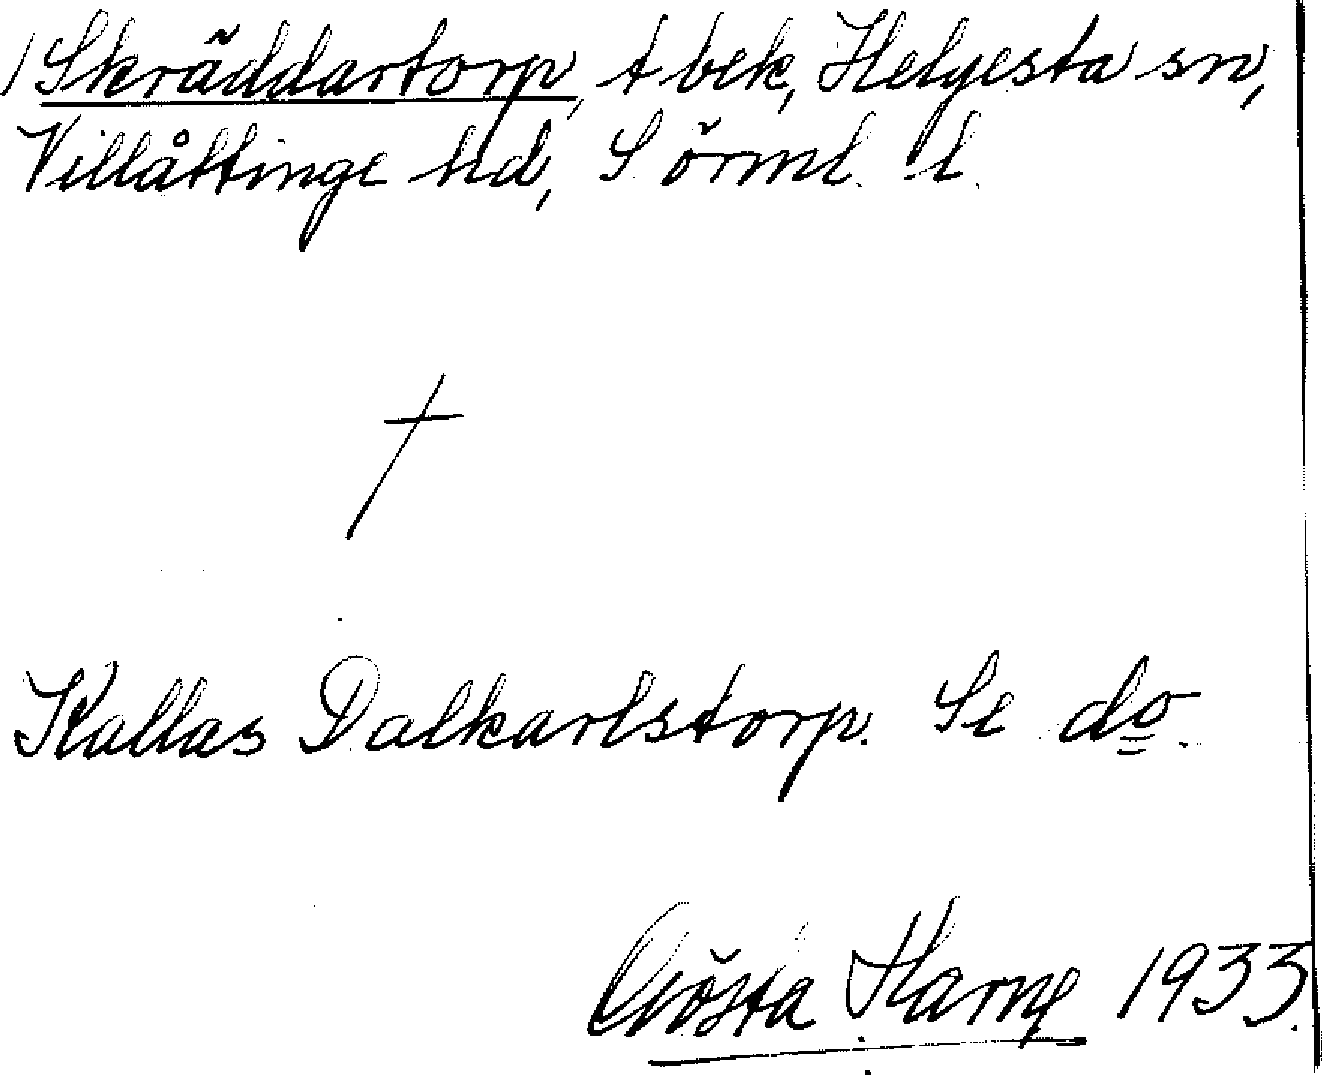 1 Skräddartorp, t bek, Helgesta sn,
Villåttinge hd, Sörml. l.
†
Kallas Dalkarlstorp. Se do.
Gösta Harng 1933.